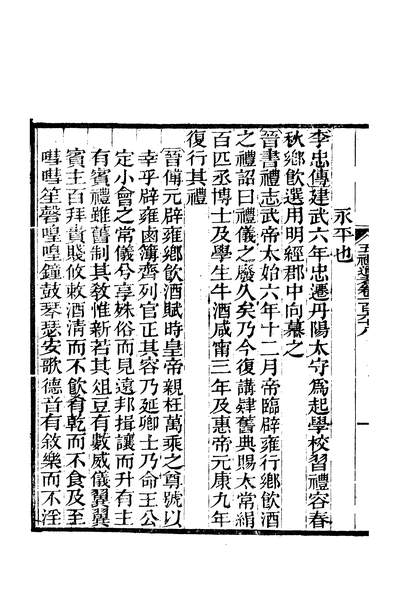 五禮通考卷一百六十八
永平也
李忠傳建武六年忠遷丹陽太守爲起學校習禮容春
秋鄉飲選用明經郡中向慕之
晉書禮志武帝太始六年十二月帝臨辟雍行鄉飲酒
之禮詔曰禮儀之廢久矣乃今復講肄舊典賜太常絹
百匹丞博士及學生牛酒咸甯三年及惠帝元康九年
復行其禮
晉傅元辟雍鄉飲酒賦時皇帝親枉萬乘之尊號以
幸乎辟雍鹵簿齊列官正其容乃延卿士乃命王公
定小會之常儀兮享殊俗而見遠邦揖讓而升有主
有賓禮雖舊制其敎惟新若其俎豆有數威儀翼翼
賓主百拜貴賤攸敕酒清而不飲肴乾而不食及至
嘒嘒笙磬喤喤鐘鼓琴瑟安歌德音有敘樂而不淫